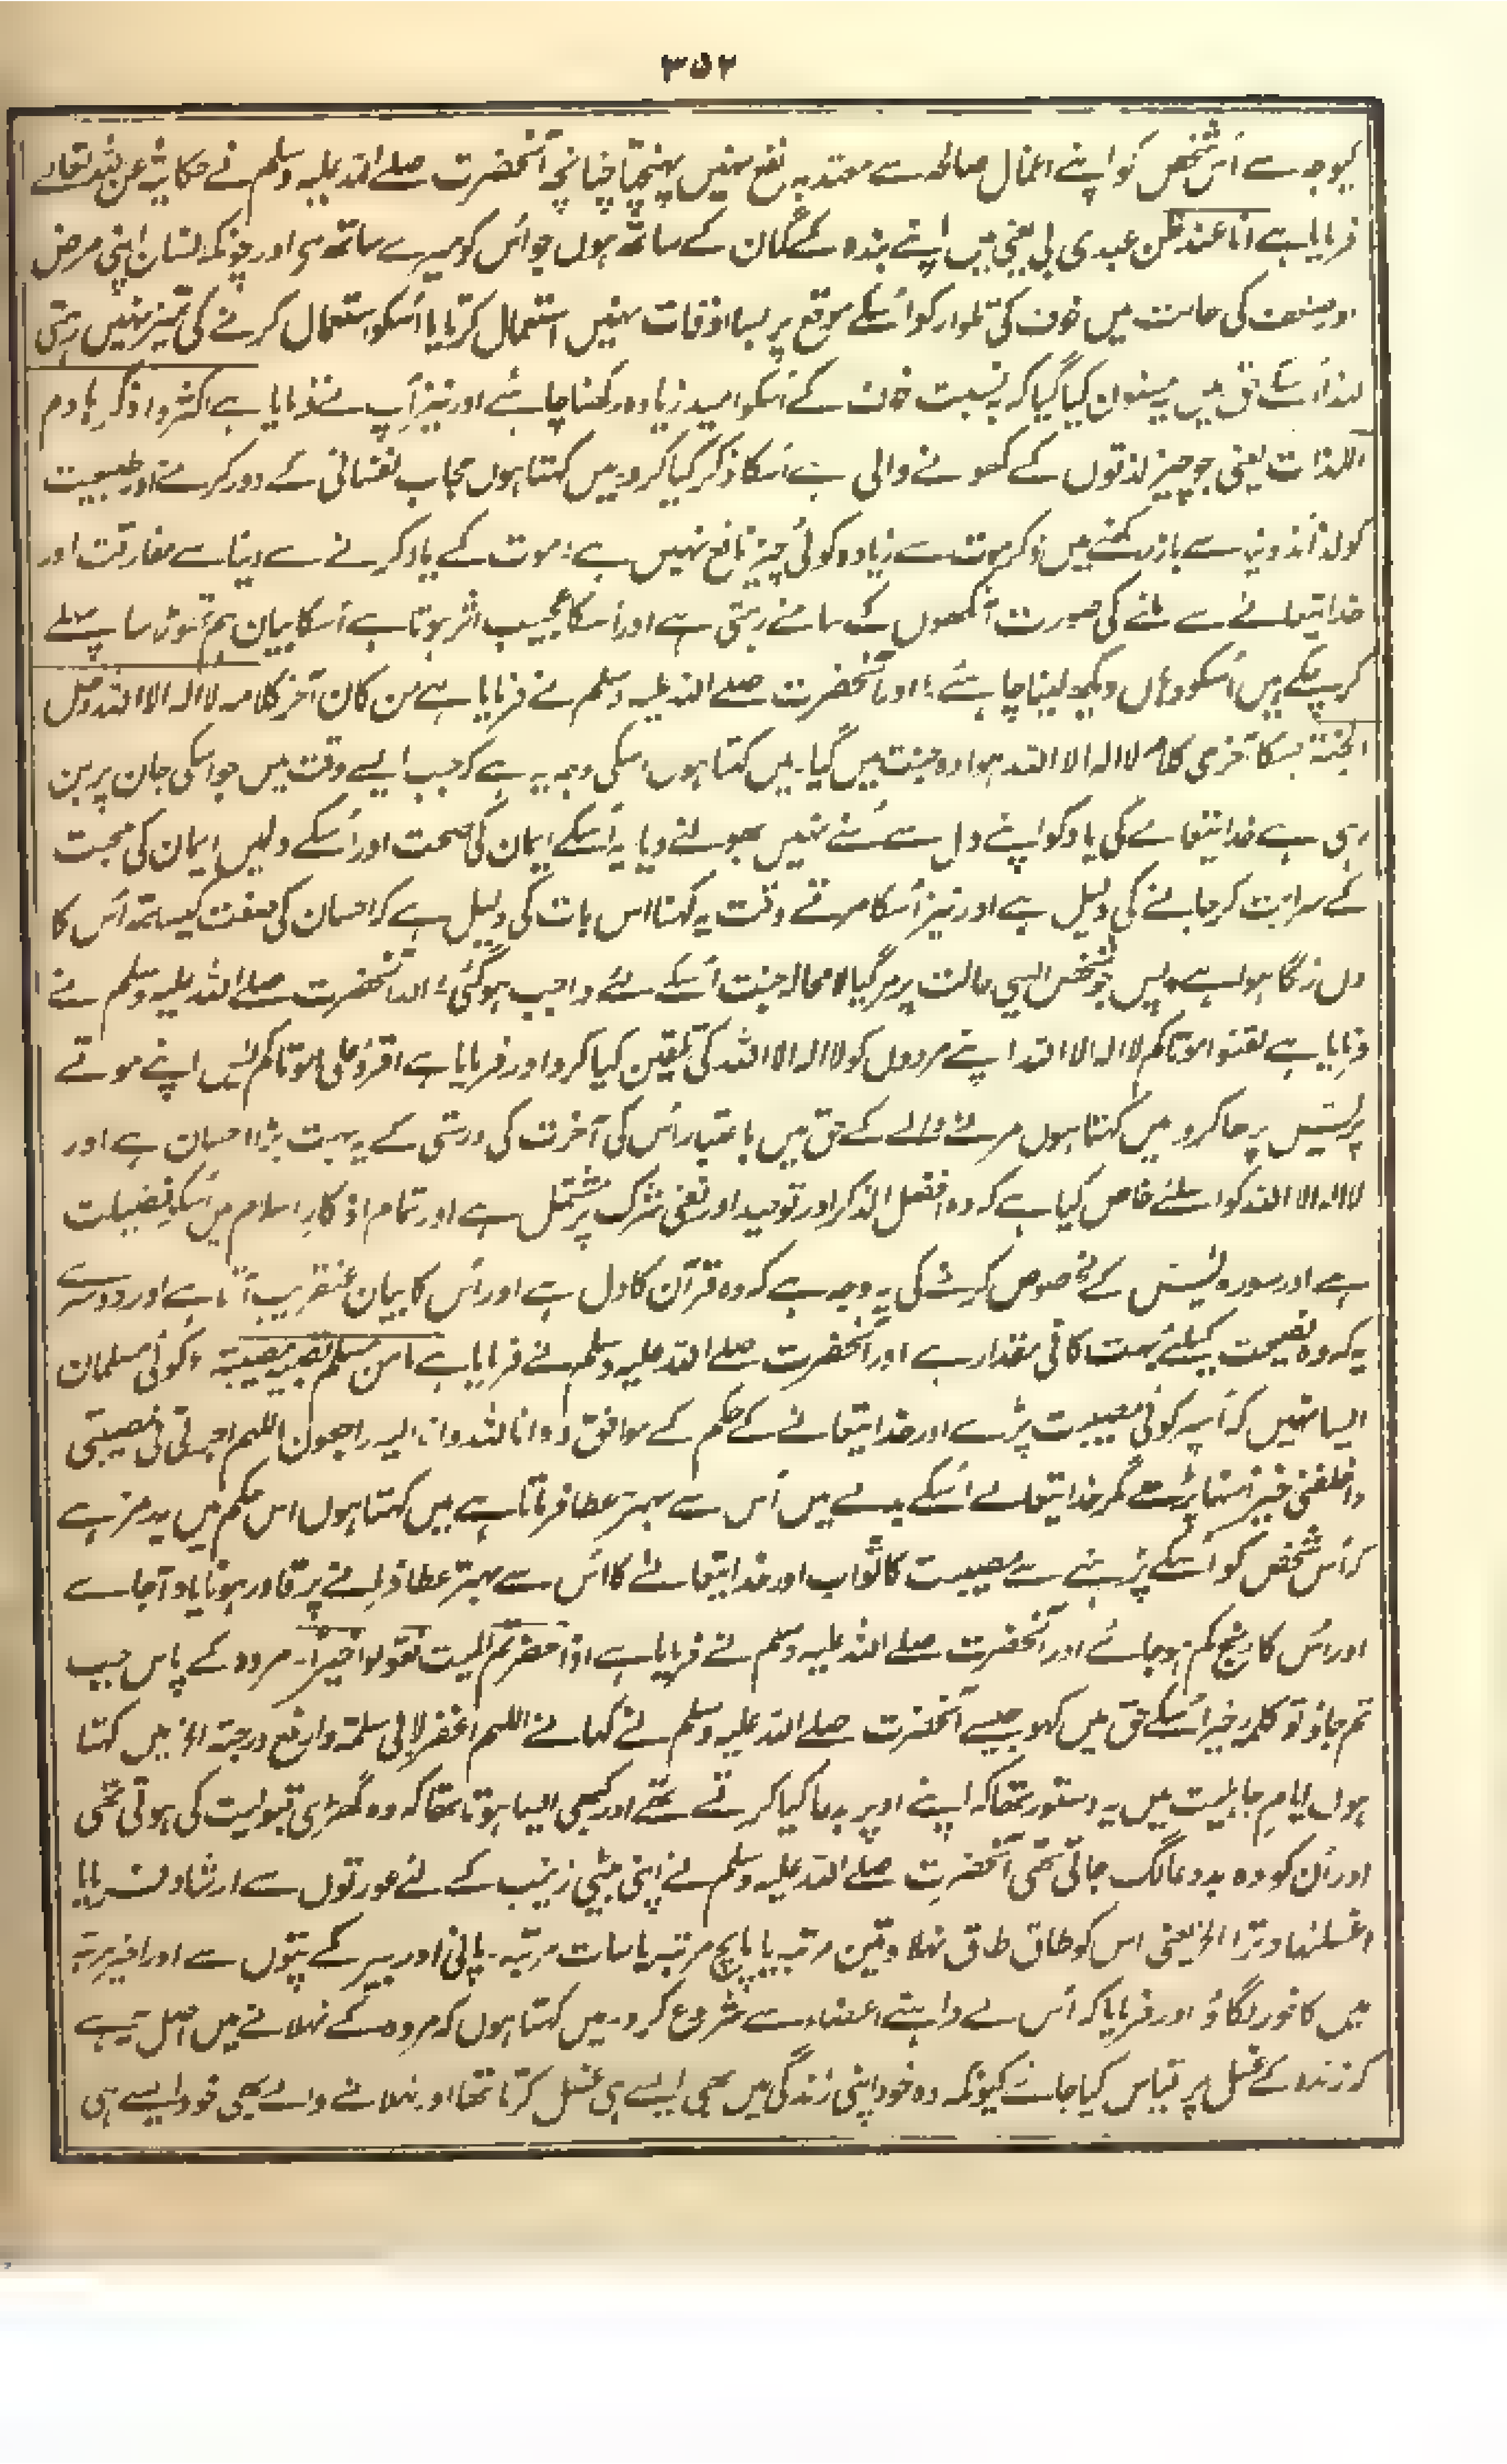 ۳۵۲
کیوجہ سے اُس شخص کو اپنے اعمال صالحہ سے معتدبہ نفع نہیں پہنچتا چنانچہ آنحضرت صلے اللہ علیہ وسلم نے حکایۃً عن اللہ تعالے
فرمایا ہے انا عند ظن عبدی بی یعنی میں اپنے بندہ کے گمان کے ساتھ ہوں جو اُس کو میرے ساتھ ہی اور چونکہ انسان اپنی مرض
اور ضعف کی حالت میں خوف کی تلوار کو اُسکے موقع پر بسا اوقات نہیں استعمال کرتا یا اُسکو استعمال کرنے کی تمیز نہیں رہتی
لہذا اُسکے حق میں یہ مسنون کیا گیا کہ بہ نسبت خوف کے اُسکو امید زیادہ رکھنا چاہئے اور نیز آپ نے فرمایا ہے اکثروا ذکر ہادم
اللذات یعنی جو چیز لذتوں کے کھونے والی ہے اُسکا ذکر کیا کرو۔ میں کہتا ہوں حجاب نفسانی کے دور کرنے اور طبیعت
کو لذائذ دنیہ سے باز رکھنے میں ذکر موت سے زیادہ کوئی چیز نافع نہیں ہے؛ موت کے یاد کرنے سے دنیا سے مفارقت اور
خدا یتعالے سے ملنے کی صورت آنکھوں کے سامنے رہتی ہے اور اُسکا عجیب اثر ہوتا ہے اُسکا بیان ہم تھوڑا سا پہلے
کر چکے ہیں اُسکو وہاں دیکھ لینا چاہئے؛ اور آنحضرت صلے اللہ علیہ وسلم نے فرمایا ہے من کان آخر کلامہ لا الہ الا اللہ دخل
الجنۃ جسکا آخری کلام لا الہ الا اللہ ہوا وہ جنت میں گیا۔ میں کہتا ہوں اسکی وجہ یہ ہے کہ جب ایسے وقت میں جو اسکی جان پر بن
رہی ہے خدا یتعالے کی یاد کو اپنے دل سے اُسنے نہیں بھولنے دیا یہ اُسکے ایمان کی صحت اور اُسکے دلمیں ایمان کی محبت
کے سرایت کر جانے کی دلیل ہے اور نیز اُسکا مرتے وقت یہ کہنا اس بات کی دلیل ہے کہ احسان کی صفت کیساتھ اُس کا
دل رنگا ہوا ہے پس جو شخص ایسی حالت پر مر گیا لا محالہ جنت اُسکے لئے واجب ہو گئی؛ اور آنحضرت صلے اللہ علیہ وسلم نے
فرمایا ہے لقنوا موتاکم لا الہ الا اللہ اپنے مردوں کو لا الہ الا اللہ کی تلقین کیا کرو اور فرمایا ہے اقرؤا علی موتاکم یٰسٓ اپنے موتے
پر یٰسٓ پڑھا کرو۔ میں کہتا ہوں مرنے والے کے حق میں باعتبار اُس کی آخرت کی درستی کے یہ بہت بڑا احسان ہے اور
لا الہ الا اللہ کو اسلئے خاص کیا ہے کہ وہ افضل الذکر اور توحید اور نفی شرک پر مشتمل ہے اور تمام اذکار اسلام میں اُسکو فضیلت
ہے اور سورہ یٰسٓ کے مخصوص کرنے کی یہ وجہ ہے کہ وہ قرآن کا دل ہے اور اُس کا بیان عنقریب آتا ہے اور دوسرے
یہ کہ وہ نصیحت کیلئے بہت کافی مقدار ہے اور آنحضرت صلے اللہ علیہ وسلم نے فرمایا ہے ما من مسلم تصیبہ مصیبۃ ؛ کوئی مسلمان
ایسا نہیں کہ اُسپر کوئی مصیبت پڑے اور خدا یتعالے کے حکم کے موافق وہ انا للہ وانا الیہ راجعون اللہم اجرنی فی مصیبتی
واخلفنی خیرا منہا پڑہے مگر خدا یتعالے اُسکے بدلے میں اُس سے بہتر عطا فرماتا ہے میں کہتا ہوں اس حکم میں یہ رمز ہے
کہ اُس شخص کو اُسکے پڑہنے سے مصیبت کا ثواب اور خدا یتعالے کا اُس سے بہتر عطا فرمانے پر قادر ہونا یاد آجاے
اور اُس کا رنج کم ہو جائے اور آنحضرت صلے اللہ علیہ وسلم نے فرمایا ہے اذا حضرتم المیت فقولوا خیرا۔ مردہ کے پاس جب
تم جاؤ تو کلمہ خیر اُسکے حق میں کہو جیسے آنحضرت صلے اللہ علیہ وسلم نے کہا نے اللہم اغفر لابی سلمۃ وارفع درجتہ الخ میں کہتا
ہوں ایام جاہلیت میں یہ دستور تھا کہ اپنے اوپر بددعا کیا کرتے تھے اور کبھی ایسا ہوتا تھا کہ وہ گھڑی قبولیت کی ہوتی تھی
اور اُن کو وہ بددعا لگ جاتی تھی آنحضرت صلے اللہ علیہ وسلم نے اپنی بیٹی زینب کے لئے عورتوں سے ارشاد فرمایا
اغسلنہا وترا الخ یعنی اس کو طاق طاق نہلاؤ تین مرتبہ یا پانچ مرتبہ یا سات مرتبہ۔ پانی اور بیر کے پتوں سے اور اخیر مرتبہ
میں کافور لگاؤ اور فرمایا کہ اُس کے داہنے اعضاء سے شروع کرو۔ میں کہتا ہوں کہ مردہ کے نہلانے میں اصل یہ ہے
کہ زندہ کے غسل پر قیاس کیا جائے کیونکہ وہ خود اپنی زندگی میں بھی ایسے ہی غسل کرتا تھا اور نہلانے والے بھی خود ایسے ہی